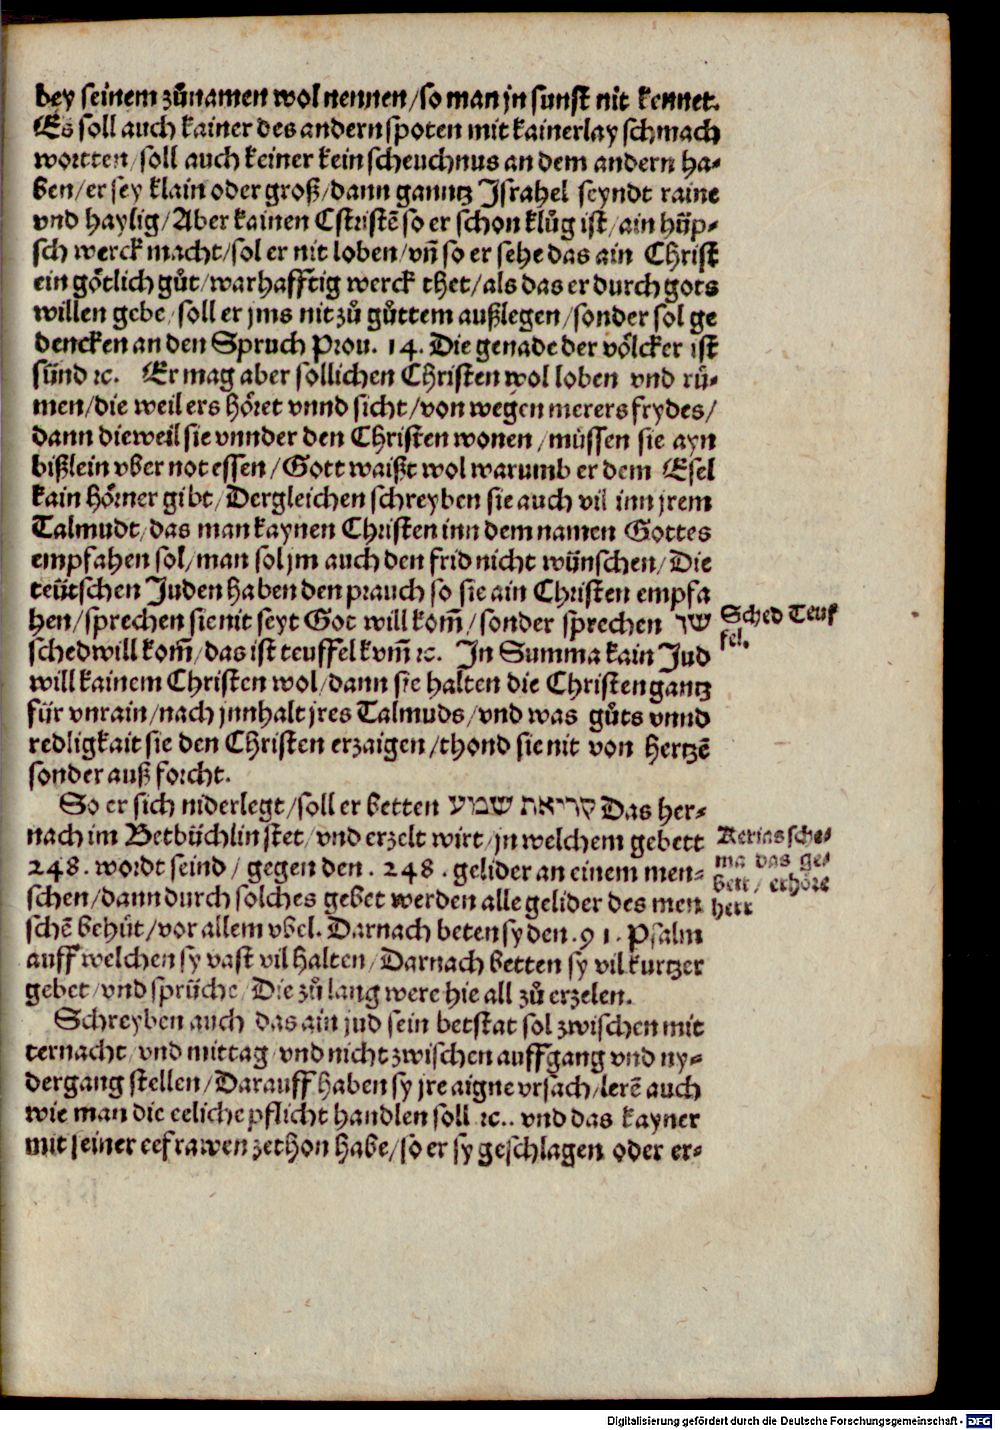 bey seinem zůnamen wol nennen/so man jn sunst nit kennet.
Es soll auch kainer des andern spoten mit kainerlay schmach
wortten/soll auch keiner kein scheuchnus an dem andern ha-
ben/er sey klain oder groß/dann ganntz Jsrahel seyndt raine
vnd haylig/Aber kainen Cstristē so er schon klůg ist/ain hüp-
sch werck macht/sol er nit loben/vñ so er sehe das ain Christ
ein götlich gůt/warhafftig werck thet/als das er durch gots
willen gebe/soll er jms nit zů gůttem außlegen/sonder sol ge
dencken an den Spruch Prou. 14. Die genade der völcker ist
sünd ꝛc. Er mag aber sollichen Christen wol loben vnd rů-
men/die weil ers höret vnnd sicht/von wegen merers frydes/
dann dieweil sie vnnder den Christen wonen/müssen sie ayn
bißlein vber not essen/Gott waißt wol warumb er dem Esel
kain hörner gibt/Dergleichen schreyben sie auch vil inn jrem
Talmudt/das man kaynen Christen inn dem namen Gottes
empfahen sol/man sol jm auch den frid nicht wünschen/Die
teütschen Juden haben den prauch so sie ain Christen empfa
hen/sprechen sie nit seyt Got will kom̃/sonder sprechen שד
Sched Teuf
fel.
sched will kom̃/das ist teuffel kvm̃ ꝛc. Jn Summa kain Jud
will kainem Christen wol/dann sie halten die Christen gantz
für vnrain/nach jnnhalt jres Talmuds/vnd was gůts vnnd
redligkait sie den Christen erzaigen/thond sie nit von hertzē
sonder auß forcht.
So er sich niderlegt/soll er betten קריאת שמע Das her-
nach im Betbüchlin stet/vnd erzelt wirt/jn welchem gebett
248. wordt seind/gegen den. 248. gelider an einem men-
schen/dann durch solches gebet werden alle gelider des men
schē behüt/vor allem vbel. Darnach beten sy den .91. Psalm
Kerias sche-
ma das ge-
bett/erhöre
herr
auff welchen sy vast vil halten/Darnach betten sy vil kurtzer
gebet/vnd sprüche/Die zů lang were hie all zů erzelen.
Schreyben auch das ain jud sein betstat sol zwischen mit
ternacht/vnd mittag/vnd nicht zwischen auffgang vnd ny-
dergang stellen/Darauff haben sy jre aigne vrsach/lerē auch
wie man die eeliche pflicht handlen soll ꝛc.. vnd das kayner
mit seiner eefrawen zethon habe/so er sy geschlagen oder er-
Digitalisierung gefördert durch die Deutsche Forschungsgemeinschaft - DFG